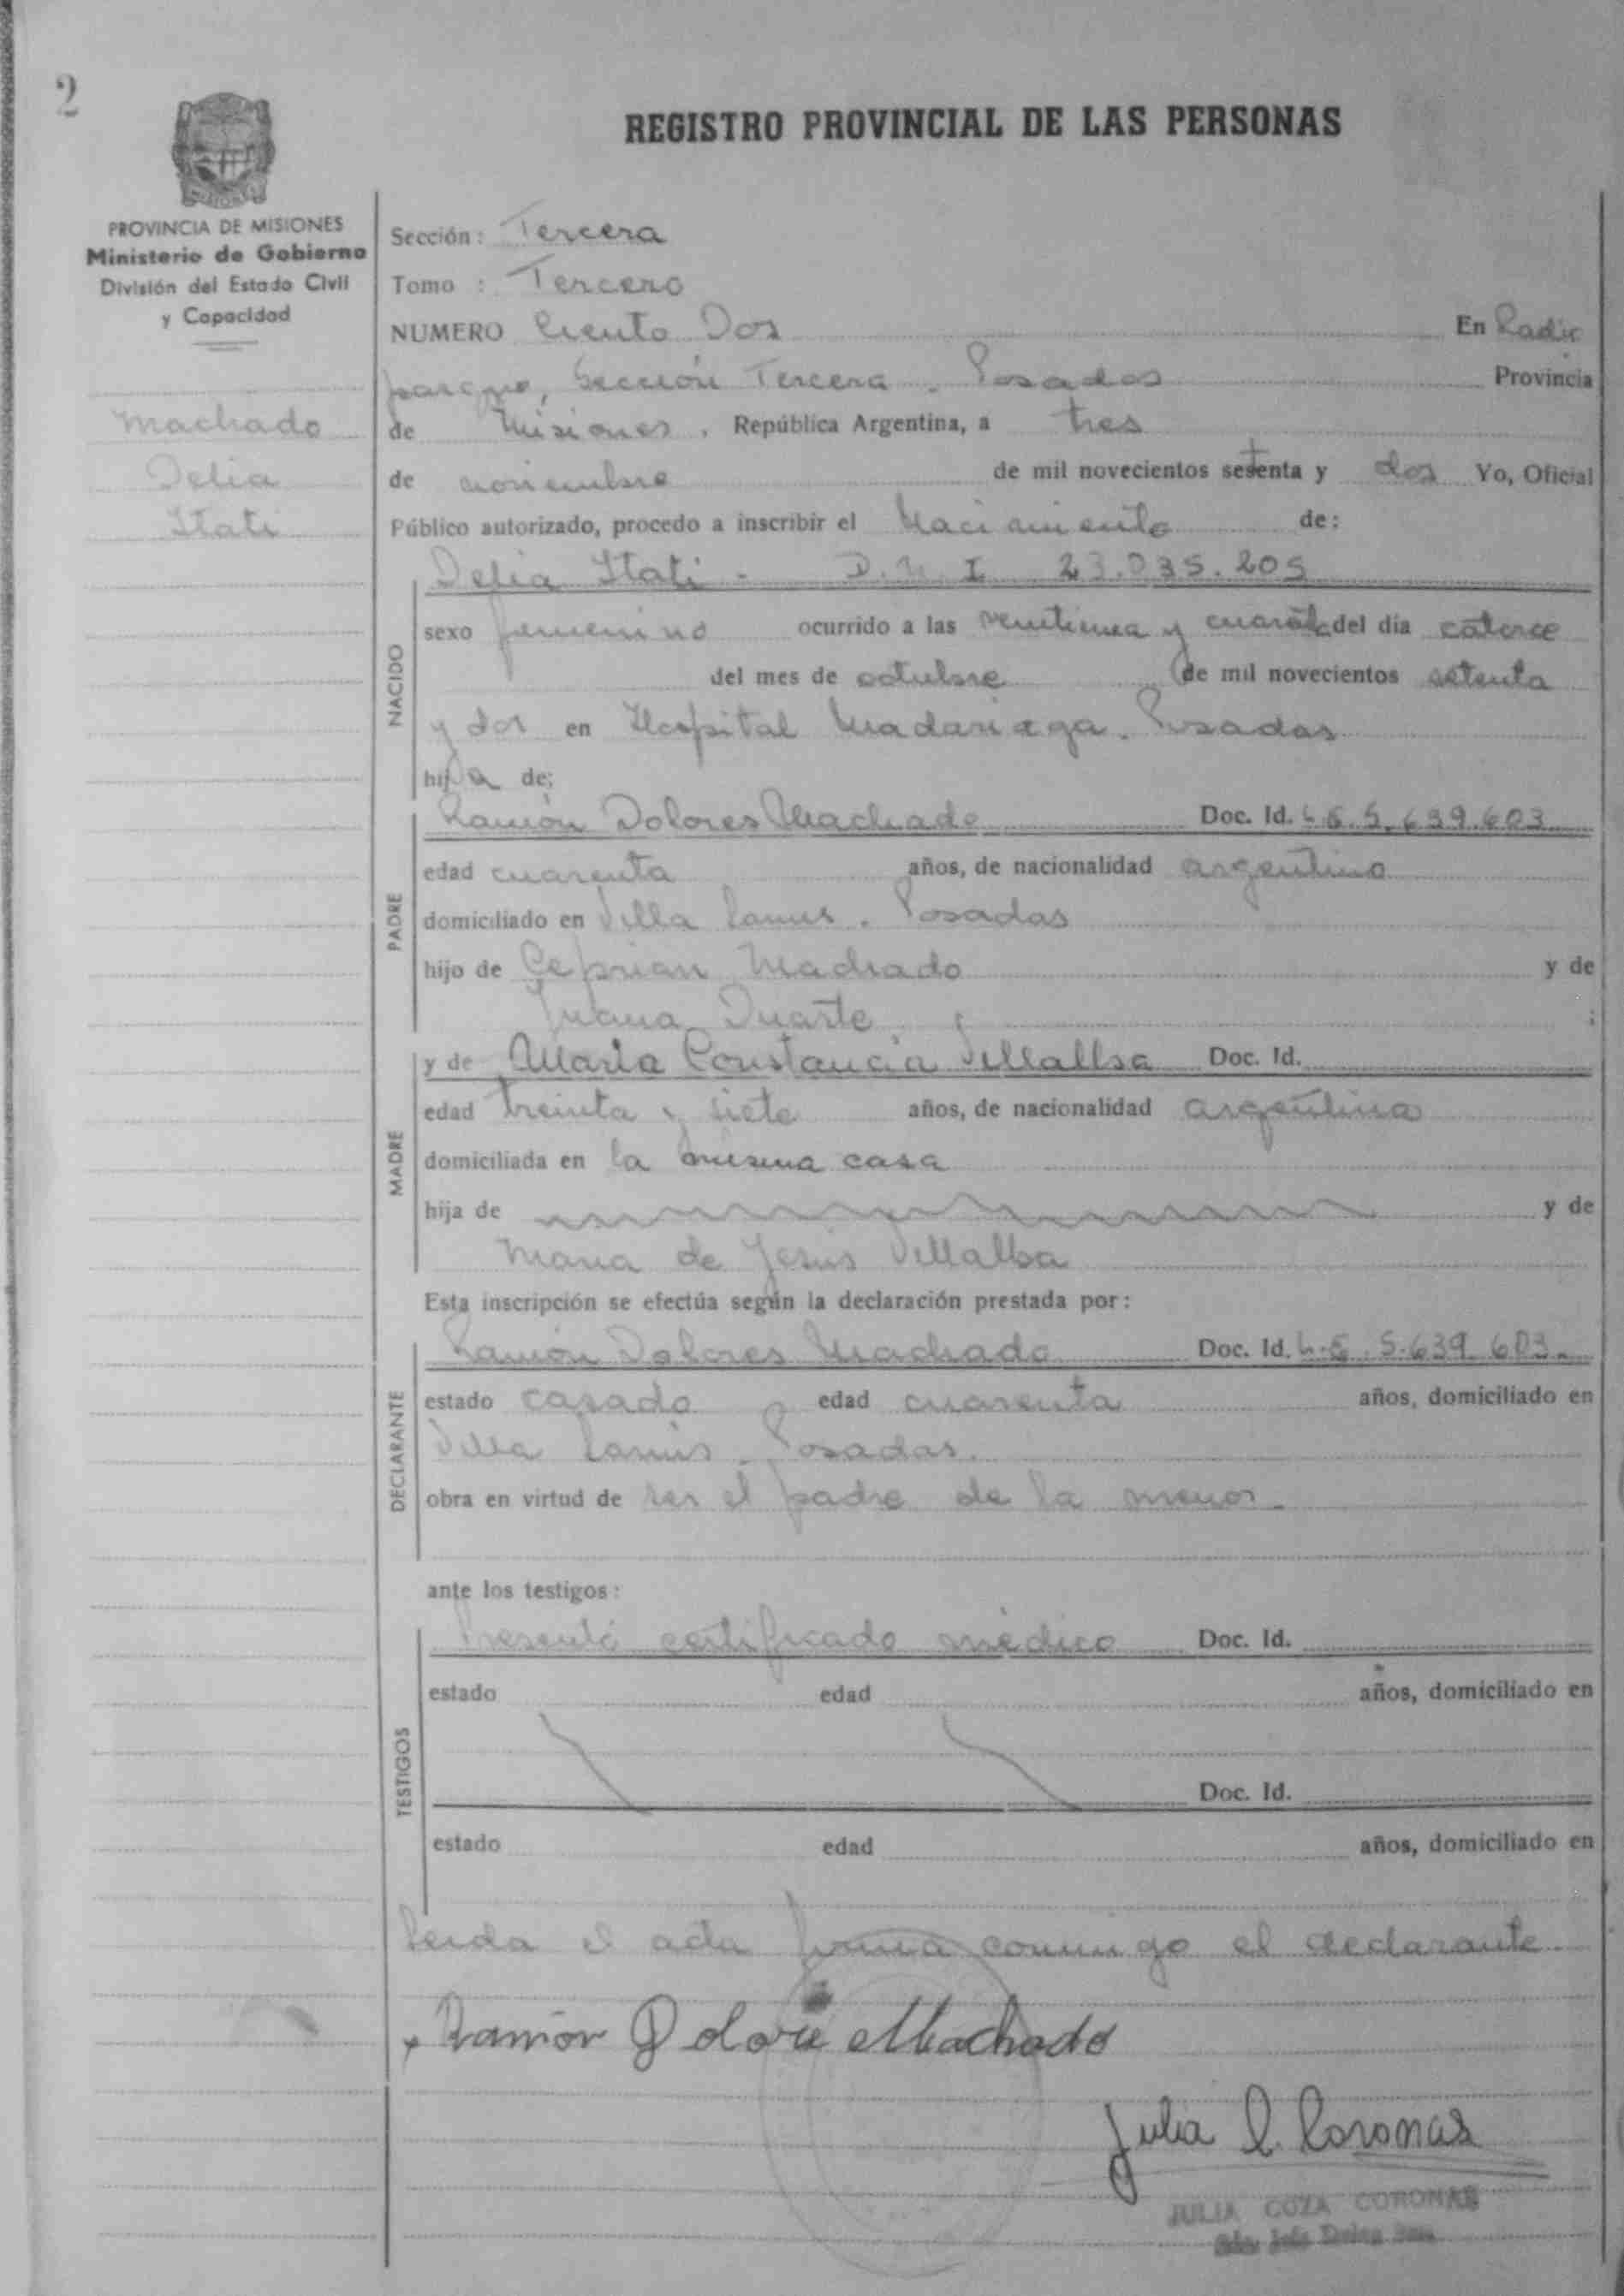 2
REGISTRO PROVINCIAL DE LAS PERSONAS
PROVINCIA DE MISIONES
Ministerio de Gobierno
División del Estado Civil
y Capacidad
Machado
Delia
Itati
Sección: Tercera
Tomo : Tercero
NUMERO Ciento Dos En Radio
parque, Sección Tercera. Posadas Provincia
de Misiones. República Argentina, a tres
de noviembre de mil novecientos setenta y dos Yo, Oficial
Público autorizado, procedo a inscribir el Nacimiento de:
Delia Itati - D.N.I 23.035.205
NACIDO
sexo femenino ocurrido a las y del día catorce
del mes de octubre de mil novecientos setenta
y dos en Hospital Madariaga. Posadas
hija de;
PADRE
Ramón Dolores Machado Doc. Id. 5.639.603
edad cuarenta años, de nacionalidad argentino
domiciliado en Villa Lanus. Posadas
hijo de Ceprian Machado y de
Juana Duarte ;
MADRE
y de Maria Constancia Villalba Doc. Id.
edad treinta y siete años, de nacionalidad argentina
domiciliada en la misma casa
hija de y de
Maria de Jesus Villalba
Esta inscripción se efectúa según la declaración prestada por:
DECLARANTE
Ramón Dolores Machado Doc. Id. 5.639.603.
estado casado edad cuarenta años, domiciliado en
Villa Lanús. Posadas.
obra en virtud de ser el padre de la menor.
ante los testigos:
TESTIGOS
Presentó certificado médico Doc. Id.
estado edad años, domiciliado en
Doc. Id.
estado edad años, domiciliado en
Leida el acta firma conmigo el declarante.
Ramón Dolore Machado
Julia C. Coronas
JULIA COZA CORONAS